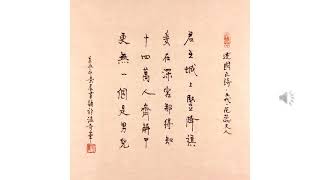 述國亡詩 五代 花蕊夫人
君王城上豎降旗
妾在深宮那得知
十四萬人齊解甲
更無一個是男兒